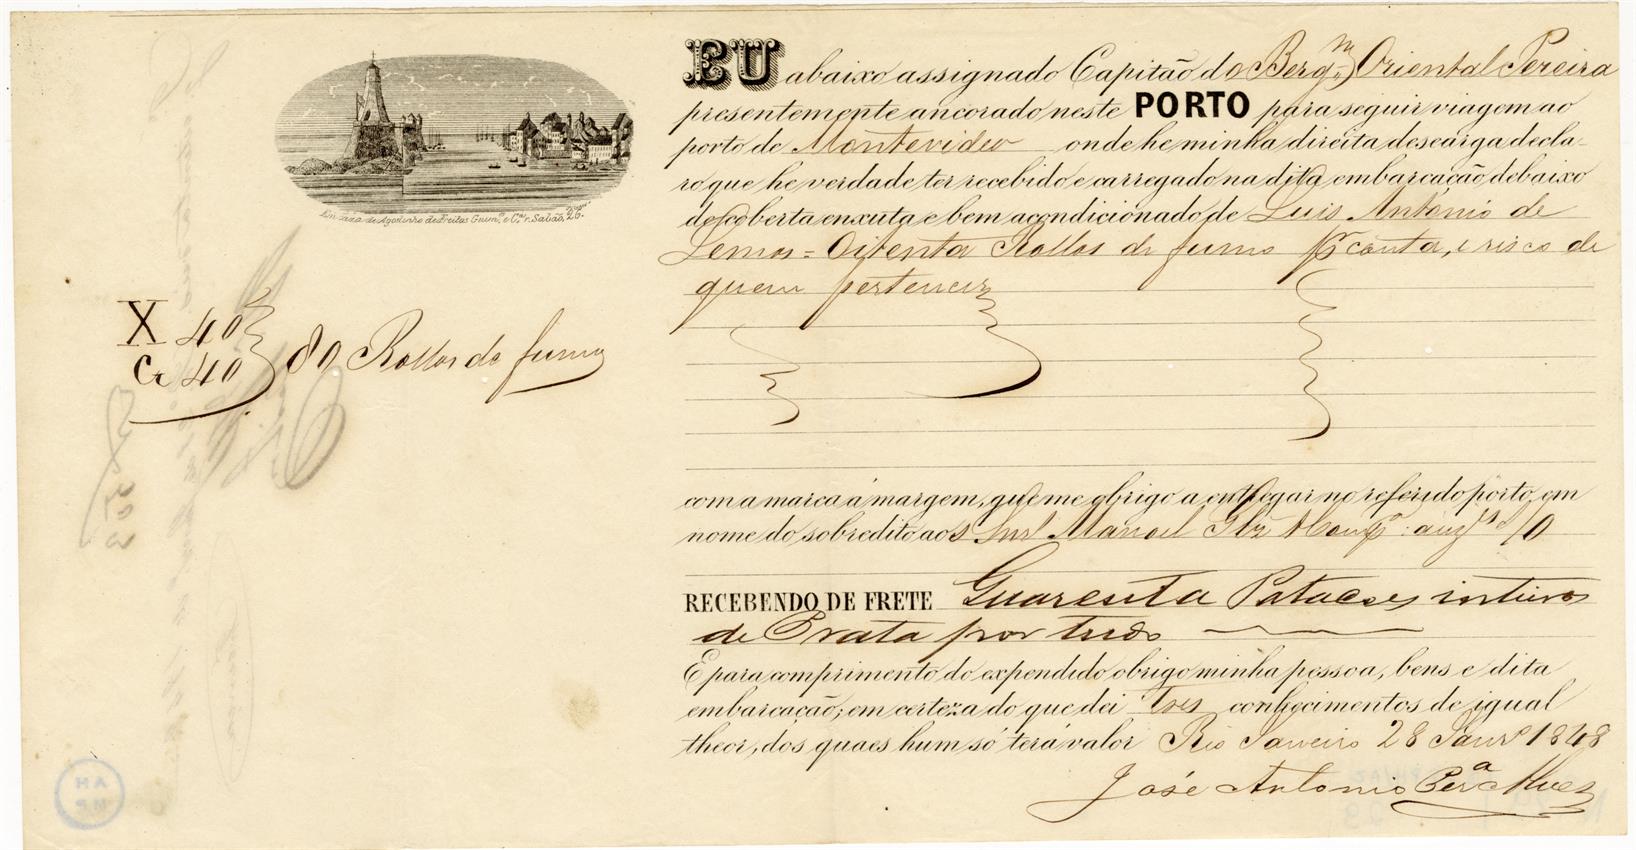 EU abaixo assignado Capitão do Bergm Oriental Pereira
presentemente ancorado neste PORTO para seguir viagem ao
porto de Montevideo onde he minha direita descarga decla-
ro que he verdade ter recebido e carregado na dita embarcação debaixo
de coberta enxuta e bem acondicionado de Luis Antonio de
Lemos = Oitenta Rollos de fumo pr conta, e risco de
quem pertencer
X 40
Cr 40
80 Rollos de fumo
com a marca á margem, que me obrigo a entregar no referido porto, em
nome do sobredito aos Snrs Manoel
RECEBENDO DE FRETE Guarenta Patacoes inteiros
de Prata por tudo
E para comprimento do expendido obrigo minha pessoa, bens e dita
embarcação; em certeza do que dei Tres conhecimentos de igual
theor, dos quaes hum só terá valor Rio Janeiro 28 Janro 1848
José Antonio Pera Alves
Em caza de Agostinho de Freitas Guim.es e C.a r. Sabão 26.
HA